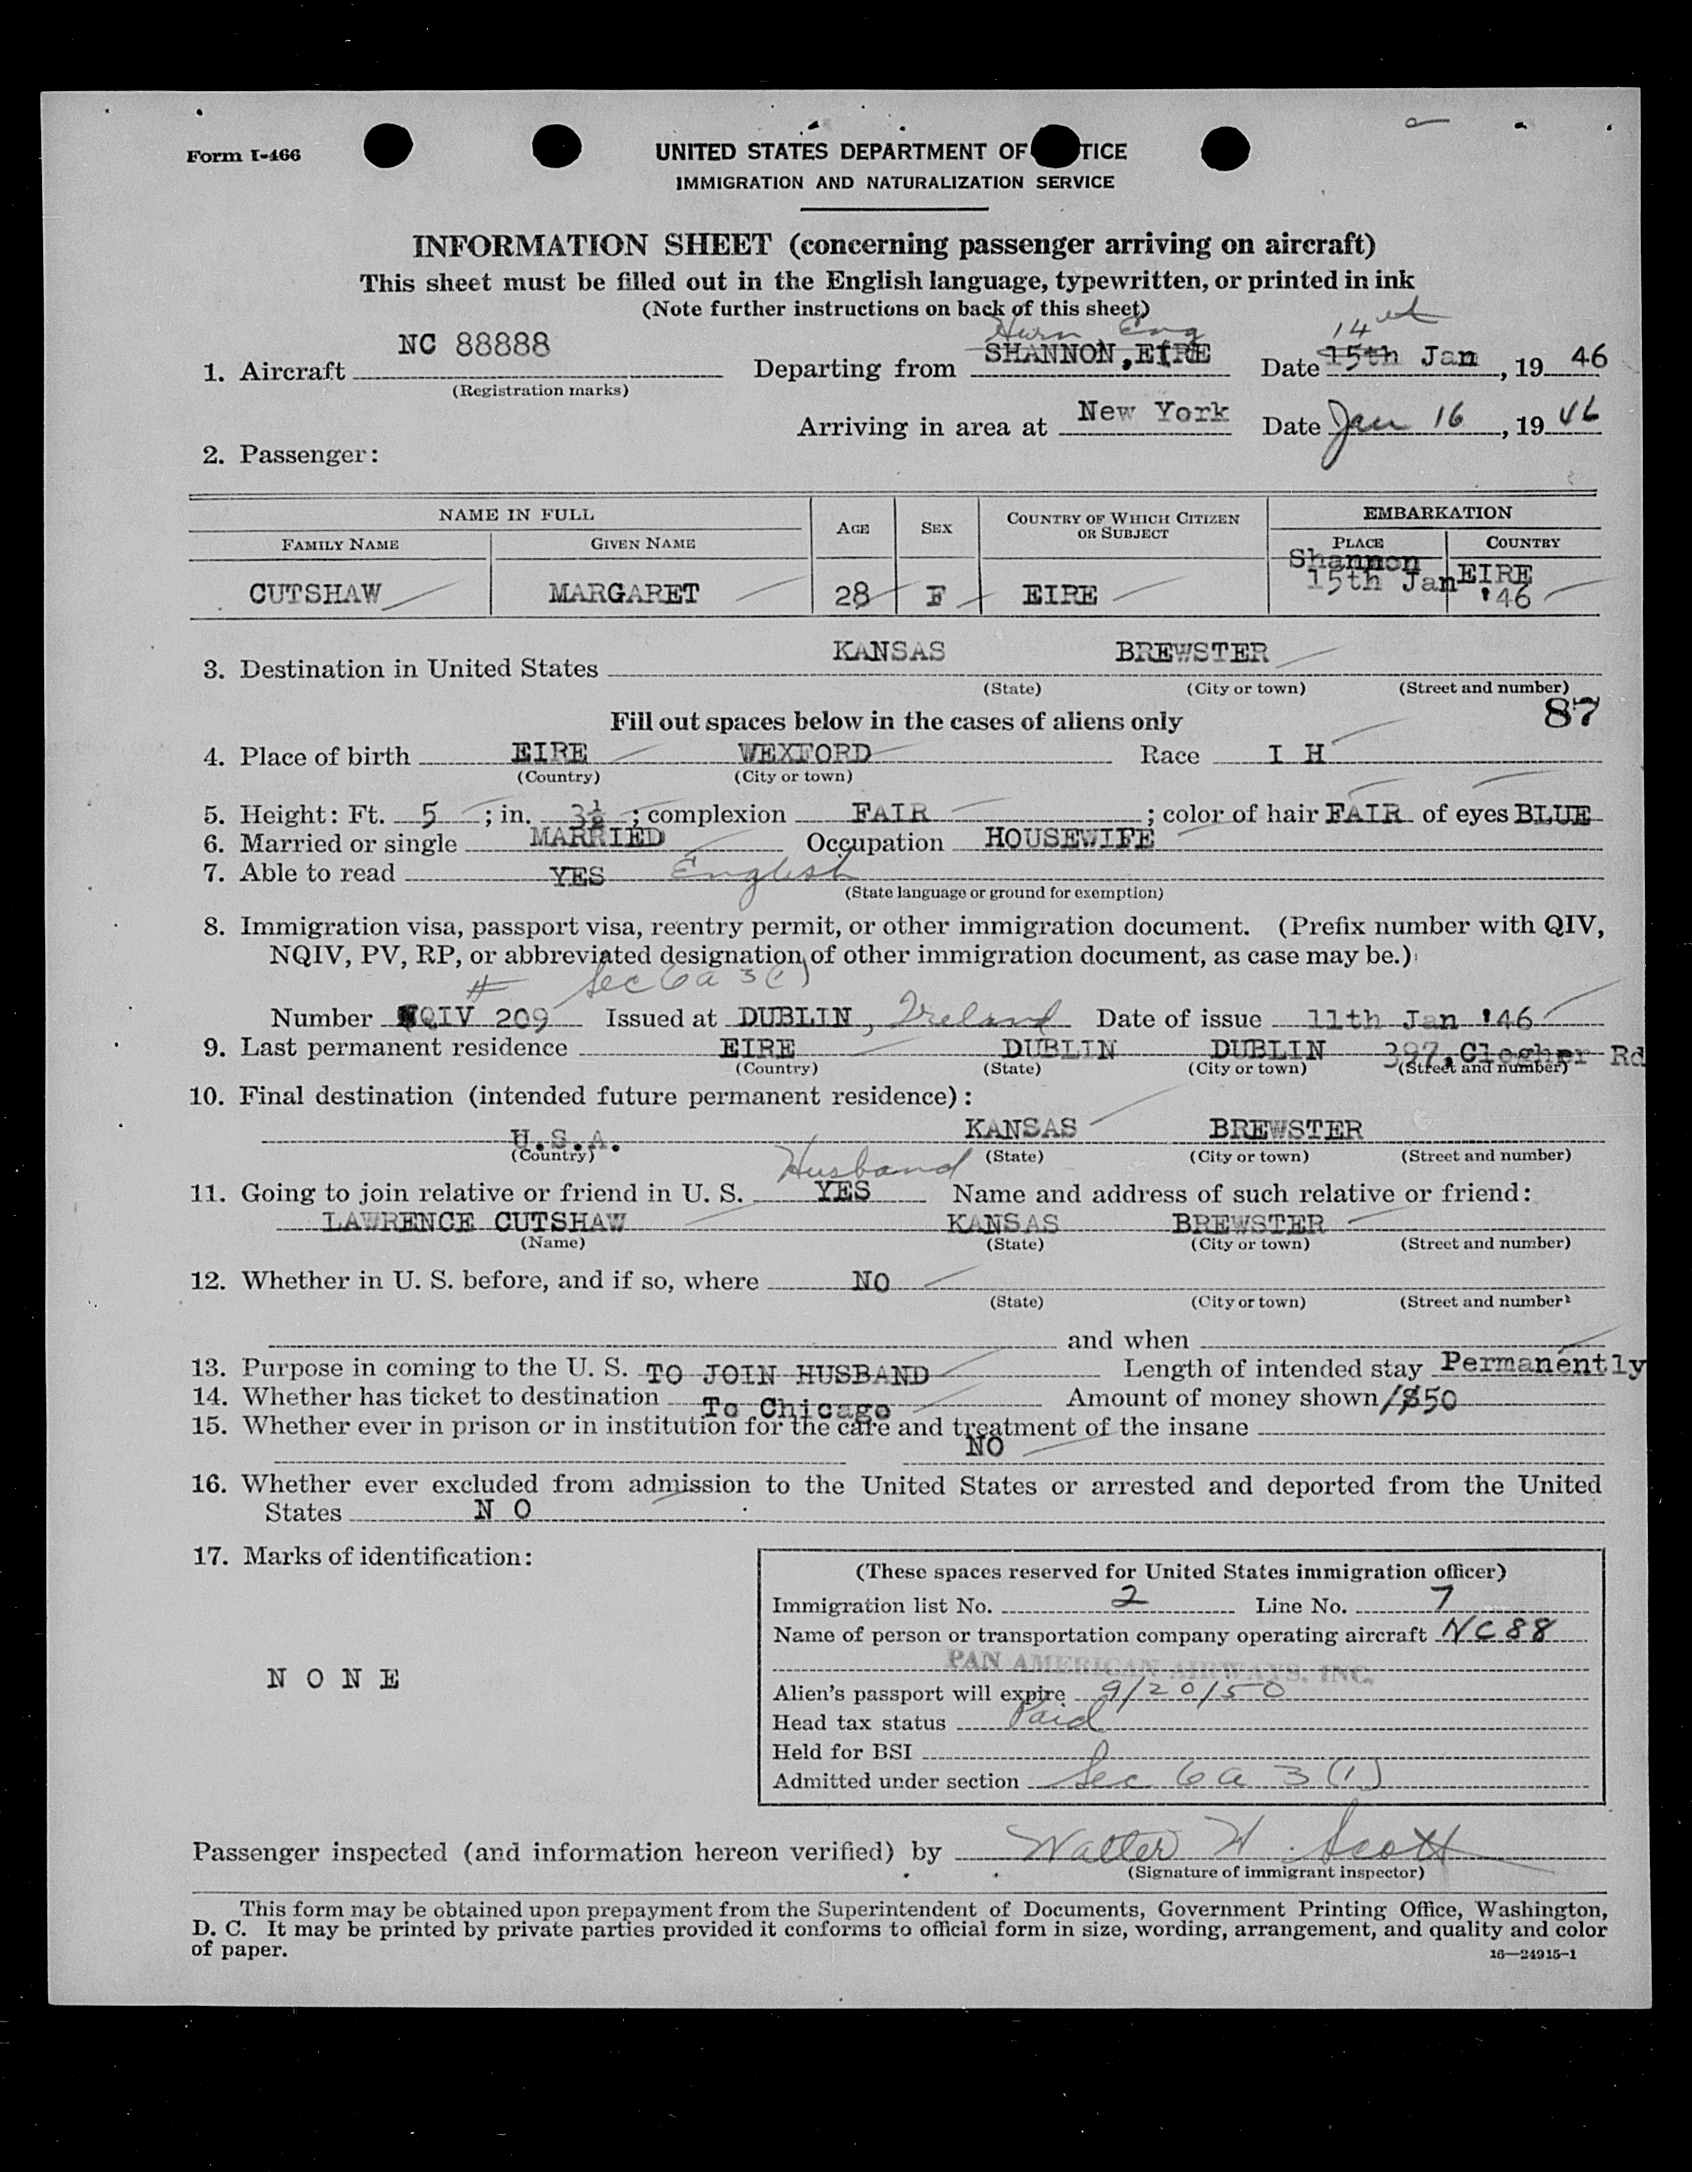 Form I-466
UNITED STATES DEPARTMENT OF TICE
IMMIGRATION AND NATURALIZATION SERVICE
INFORMATION SHEET (concerning passenger arriving on aircraft)
This sheet must be filled out in the English language, typewritten, or printed in ink
(Note further instructions on back of this sheet)
Hurn Eng 14th
1. Aircraft NC 88888 Departing from SHANNON, EIRE Date 15th Jan, 19 46
(Registration marks)
Arriving in area at New York Date Jan 16, 19 46
2. Passenger:
NAME IN FULL AGE SEX COUNTRY OF WHICH CITIZEN OR SUBJECT EMBARKATION
FAMILY NAME GIVEN NAME PLACE COUNTRY
CUTSHAW MARGARET 28 F EIRE Shannon EIRE
15th Jan '46
3. Destination in United States KANSAS BREWSTER
(State) (City or town) (Street and number)
Fill out spaces below in the cases of aliens only 87
4. Place of birth EIRE WEXFORD Race I H
(Country) (City or town)
5. Height: Ft. 5; in. 3½; complexion FAIR; color of hair FAIR of eyes BLUE
6. Married or single MARRIED Occupation HOUSEWIFE
7. Able to read YES English
(State language or ground for exemption)
8. Immigration visa, passport visa, reentry permit, or other immigration document. (Prefix number with QIV,
NQIV, PV, RP, or abbreviated designation of other immigration document, as case may be.)
# Sec 6a 3(1)
Number NQIV 209 Issued at DUBLIN, Ireland Date of issue 11th Jan '46
9. Last permanent residence EIRE DUBLIN DUBLIN 397, Clogher Rd
(Country) (State) (City or town) (Street and number)
10. Final destination (intended future permanent residence):
U.S.A. KANSAS BREWSTER
(Country) (State) (City or town) (Street and number)
Husband
11. Going to join relative or friend in U. S. YES Name and address of such relative or friend:
LAWRENCE CUTSHAW KANSAS BREWSTER
(Name) (State) (City or town) (Street and number)
12. Whether in U. S. before, and if so, where NO
(State) (City or town) (Street and number)
and when
13. Purpose in coming to the U. S. TO JOIN HUSBAND Length of intended stay Permanently
14. Whether has ticket to destination To Chicago Amount of money shown $50
15. Whether ever in prison or in institution for the care and treatment of the insane
NO
16. Whether ever excluded from admission to the United States or arrested and deported from the United
States N O
17. Marks of identification:
N O N E
(These spaces reserved for United States immigration officer)
Immigration list No. 2 Line No. 7
Name of person or transportation company operating aircraft NC88
PAN AMERICAN AIRWAYS, INC.
Alien's passport will expire 9/20/50
Head tax status Paid
Held for BSI
Admitted under section Sec 6a 3(1)
Passenger inspected (and information hereon verified) by Walter W. Scott
(Signature of immigrant inspector)
This form may be obtained upon prepayment from the Superintendent of Documents, Government Printing Office, Washington,
D. C. It may be printed by private parties provided it conforms to official form in size, wording, arrangement, and quality and color
of paper.
16—24915-1